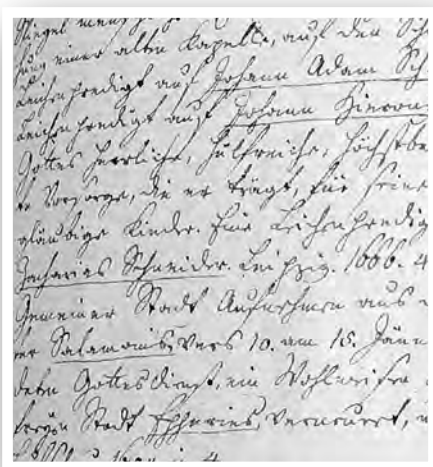 Spiegel
einer alten Kapelle, auf den
Leichenpredigt auf Johann Adam Sch
Leichenpredigt auf Johann Hieron
Gottes herrliche, hülfreiche, höchstbe
Vorsorge, die er trägt, für seine
gläubige Kinder. Eine Leichenpredig
Zacharias Schneider. Leipzig. 1666. 4
Gemeiner Stadt Aufnehmen aus
Salamonis, Vers 10. am 15. Jänn
Gottesdienst, ein Wohlweisen
Stadt Epperies, verneuert,
4